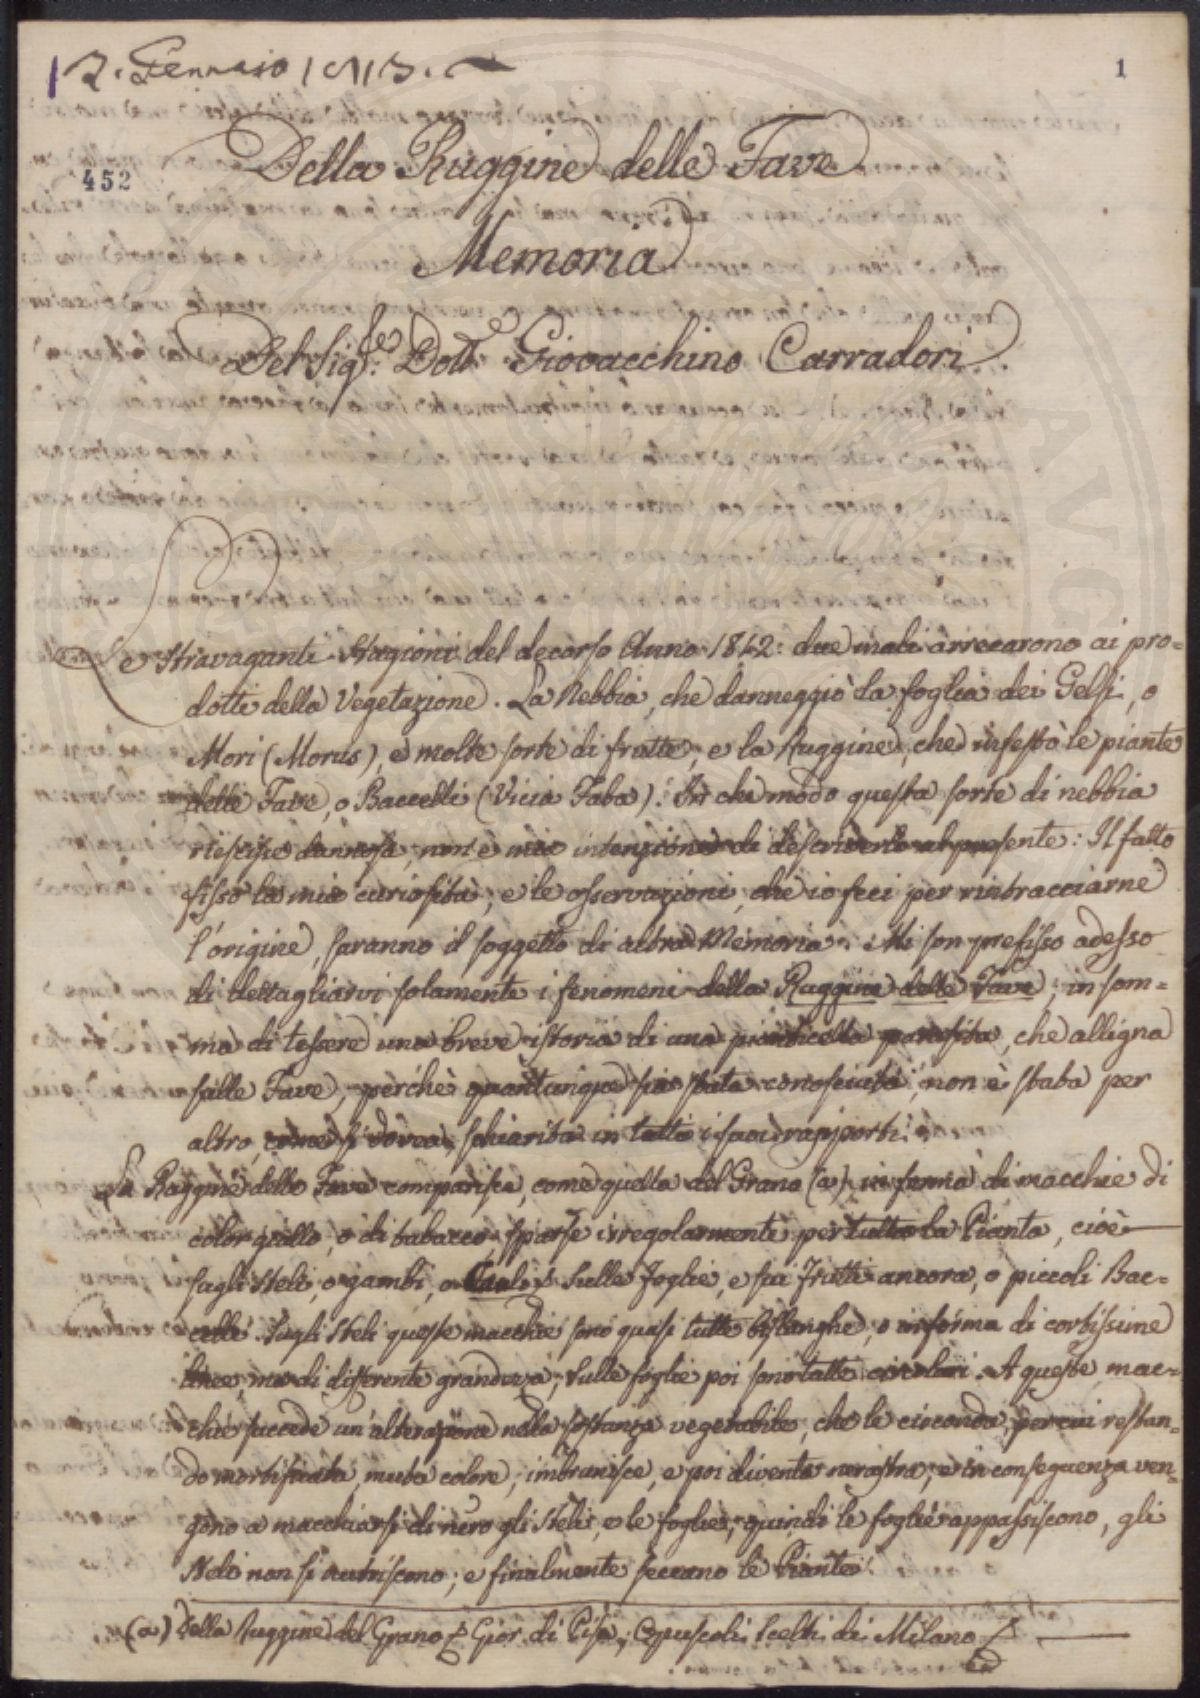 2. Gennaio 1813.
1
452
Della Ruggine delle Fave
Memoria
Del Sig.re Dott.e Giovacchino Carradori
Le Stravaganti Stagioni del decorso Anno 1812: due mali arrecarono ai pro=
dotti della Vegetazione. La Nebbia, che danneggiò la foglia dei Gelsi, o
Mori (Morus), e molte sorte di frutte, e la Ruggine, che infestò le piante
delle Fave, o Baccelli (Vicia Faba). In che modo questa sorte di nebbia
riescisse dannosa, non è mia intenzione di descriverlo al presente: Il fatto
fissò la mia curiosità, e le osservazioni, che io feci per rintracciarne
l'origine, saranno il soggetto di altra Memoria. Mi son prefisso adesso
di dettagliarvi solamente i fenomeni della Ruggine delle Fave, in som=
ma di tessere una breve istoria di una pianticella parasita, che alligna
sulle Fave, perchè quantunque sia stata conosciuta, non è stata per
altro, come si dovea, schiarita in tutti i suoi rapporti.
La Ruggine delle Fave comparisce, come quella del Grano (a) in forma di macchie di
color giallo, o di tabacco sparse irregolarmente per tutta la Pianta, cioè
sugli Steli, o gambi, o Cauli, Sulle Foglie, e sui Frutti ancora, o piccoli Bac=
celli. Sugli Steli queste macchie sono quasi tutte bislunghe, o in forma di cortissime
linee, ma di differente grandezza; Sulle foglie poi sono tutte circolari. A queste mac=
chie succede un'alterazione nella sostanza vegetabile, che le circonda, per cui restan=
do mortificata, muta colore, imbrunisce, e poi diventa nerastra, e in conseguenza ven=
gono a macchiarsi di nero gli Steli, e le foglie; quindi le foglie appassiscono, gli
Steli non si nutriscono; e finalmente seccano le Piante.
(a) Della Ruggine del Grano Gior. di Pisa, Opuscoli Scelti di Milano